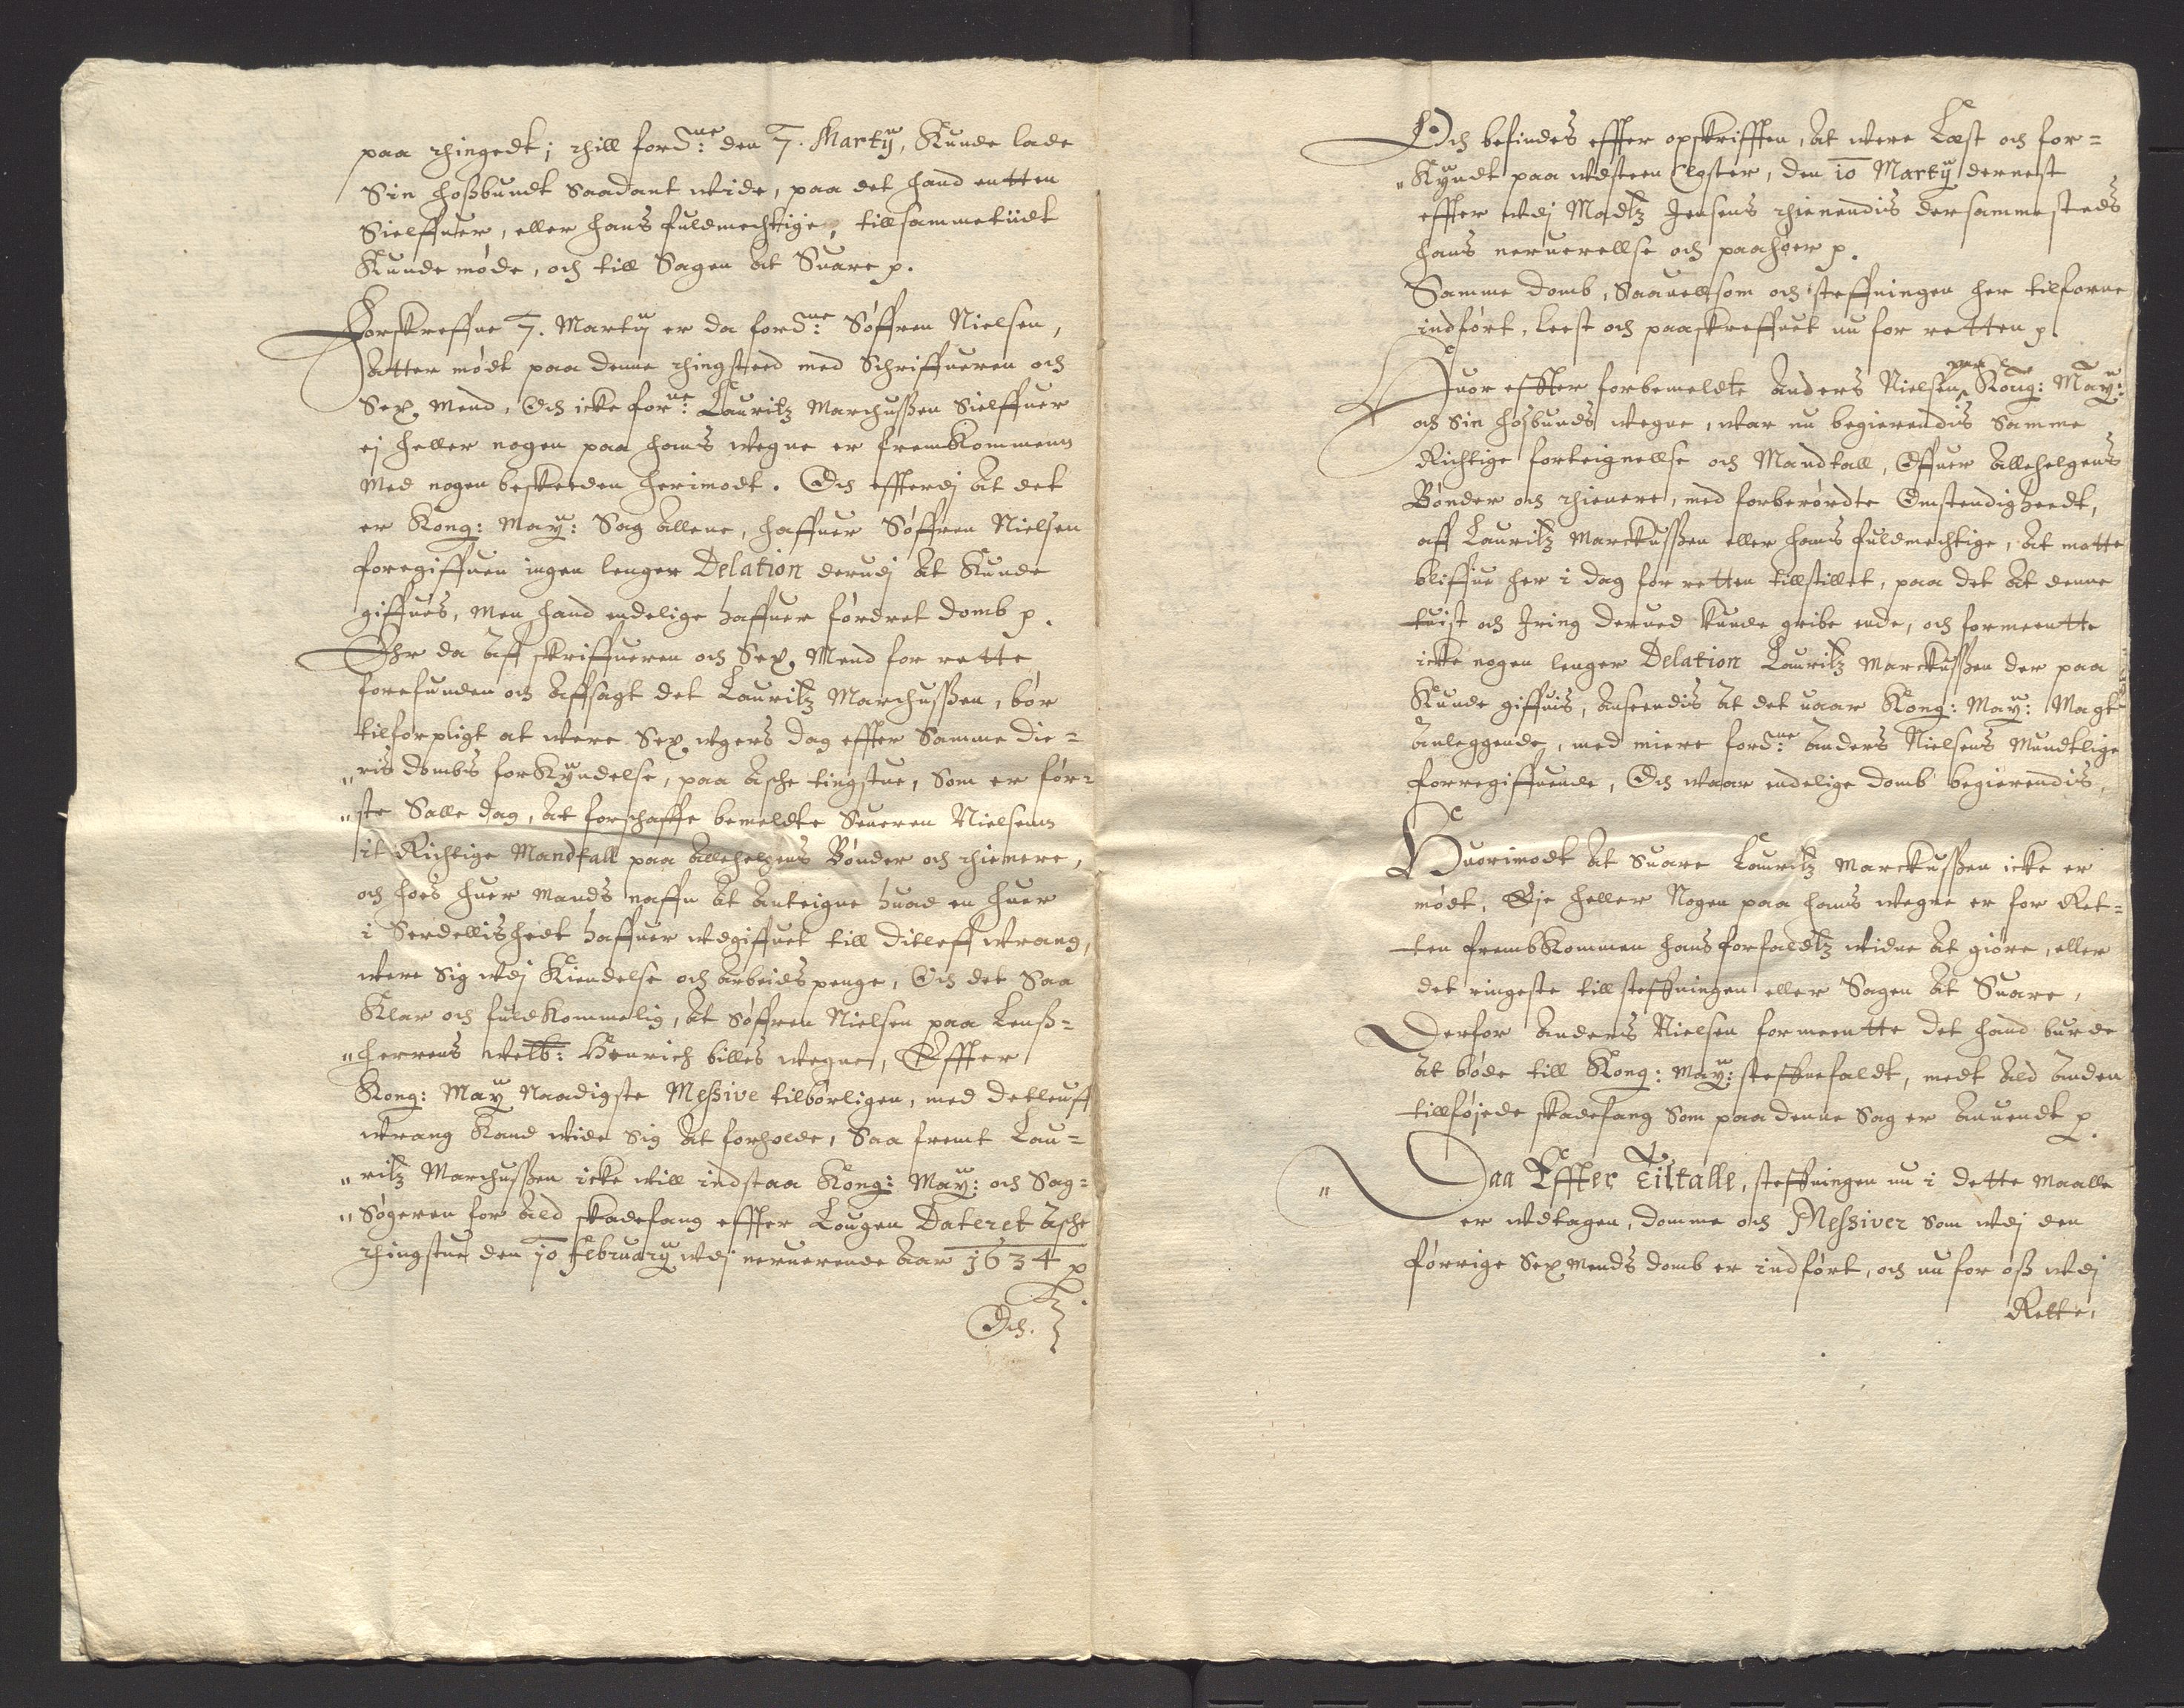 paa thingedt; thill ford:ne den 7. Martÿ, Kunde lade
Sin hoßbundt Saadant wide, paa det hand entten
Sielffuer, eller hans fuldmechtige, till sammetiidt
Kunde møde, och till Sagen at Suare p.
Forskreffne 7. Martÿ er da ford:ne Søffren Nielsen,
Atter mødt paa denne thingsteed med Schriffueren och
Sex Mend, Och icke for:ne Lauritz Marchußen Sielffuer
ej heller nogen paa hans wegne er fremkommenn
Med nogen beskeeden herimodt. Och effterdj at det
er Kong: Maÿ: Sag allene, haffuer Søffren Nielsen
foregiffuen ingen lenger Delation derudj at Kunde
giffues, Men hand endelige haffuer fordret domb p.
Ehr da aff skriffueren och Sex Mend for rette
forefunden och affsagt det Lauritz Marchußen, bør
tilforpligt at were Sex wgers dag effter Samme die=
"ris dombs forKÿndelse, paa Asche tingstue, Som er før=
"ste Salle dag, at forschaffe bemeldte Seueren Nielsenn
it Richtige Mandtall paa Allehelgens Bønder och thienere,
och hoes huer Mands naffn at Anteigne huad en huer
i Serdellished haffuer wdgiffuet till Ditleff Wrang,
were Sig wdj Kiendelse och arbeids penge, Och det Saa
Klar och fuldKommelig, at Søffren Nielsen paa Lenß=
"herrens Welb: Henrich billes wegne, Effter
Kong: Maÿ Naadigste Meßive tilbørligen, med Detleuff
Wrang Kand wide Sig at forholde, Saa fremt Lau=
"ritz Marchußen icke will indstaa Kong: Maÿ: och Sag=
"Søgeren for ald skadefang effter Lougen Dateret Asche
thingstue den 10 Februarÿ wdj neruerende Aar 1634 p
Och.
Och befindes effter opskrifften, at were Læst och for=
"Kÿndt paa Wdsteen Closter, den 10 Martÿ dernest
effter wdj Madtz Jensens thienendis dersammesteds
hans neruerellse och paahøer p.
Samme domb, Saauellsom och steffningen her tilforne
indført, leest och paaskreffuet nu for retten p.
Huor effter forbemeldte Anders Nielsen paa Kong: Maÿ:
och Sin hosbunds wegne, war nu begierendis Samme
Richtige forteignellse och Mandtall, Offuer Allehelgens
Bønder och thienere, med forberørdte Omstendigheedt,
aff Lauritz Marckußen eller hans fuldmechtige, at matte
bliffue her i dag for retten tillstillet, paa det at denne
tuist och Jring derued kunde gribe ende, och formeentte
icke nogen lenger Delation Lauritz Marckußen der paa
Kunde giffuis, anseendis at det uaar Kong: Maÿ: Magt
Anleggende, med miere ford:ne Anders Nielsens Mundtlige
forregiffuende, Och waar endelige domb begierendis,
Huorimodt at Suare Lauritz Marckußen icke er
mødt, Eje heller Nogen paa hans wegne er for Ret=
ten frembkommen hans forfaldtz widne at giøre, eller
det ringeste till steffningen eller Sagen at Suare,
Derfor Anders Nielsen formeentte det hand burde
at bøde till Kong: Maÿ: steffnefaldt, medt ald Anden
tillføjede skadefang Som paa denne Sag er Anuendt p.
" Daa Effter Tiltalle, steffningen nu i dette Maalle
er wdtagen, domme och Meßiver Som wdj den
førrige Sex Mends domb er indført, och nu for oß wdj
Rette,